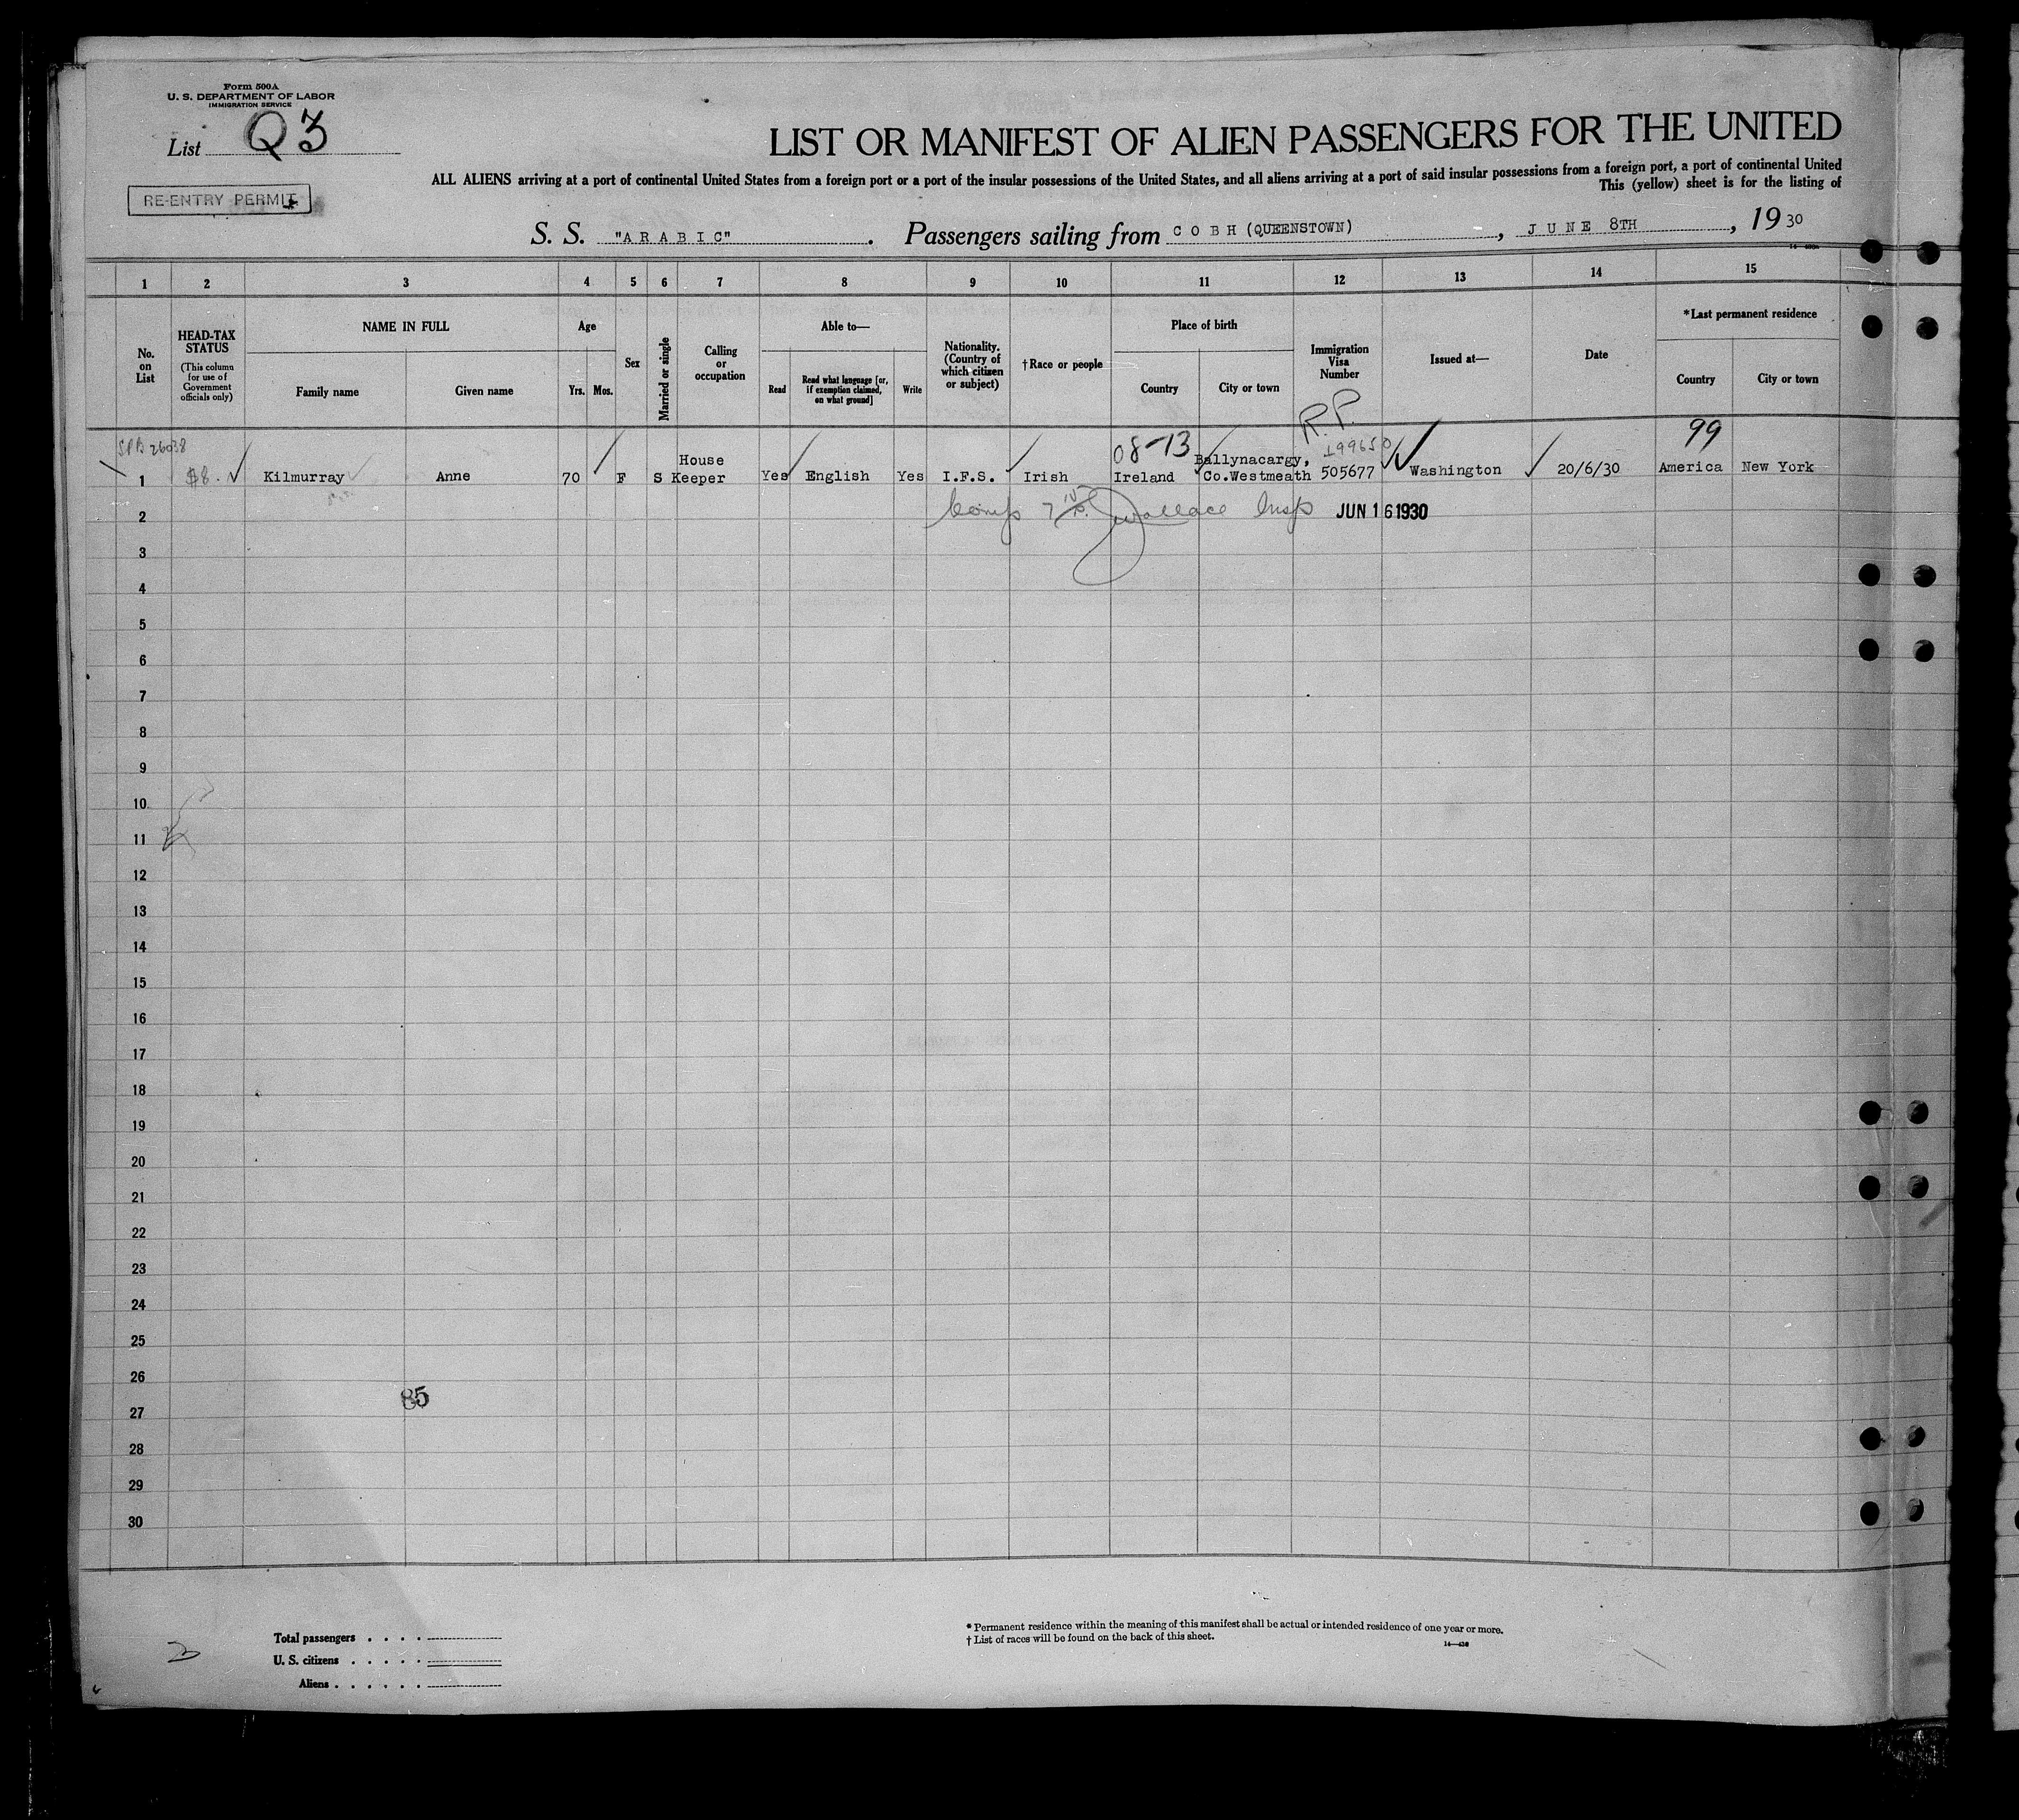 Form 500A
U. S. DEPARTMENT OF LABOR
IMMIGRATION SERVICE
List Q3
RE-ENTRY PERMIT
LIST OR MANIFEST OF ALIEN PASSENGERS FOR THE UNITED
ALL ALIENS arriving at a port of continental United States from a foreign port or a port of the insular possessions of the United States, and all aliens arriving at a port of said insular possessions from a foreign port, a port of continental United
This (yellow) sheet is for the listing of
S. S. "ARABIC". Passengers sailing from COBH (QUEENSTOWN), JUNE 8TH, 1930
1 2 3 4 5 6 7 8 9 10 11 12 13 14 15
No. on List
HEAD-TAX STATUS
(This column for use of Government officials only)
NAME IN FULL
Family name Given name
Age
Yrs. Mos.
Sex
Married or single
Calling or occupation
Able to—
Read
Read what language [or, if exemption claimed, on what ground]
Write
Nationality. (Country of which citizen or subject)
†Race or people
Place of birth
Country City or town
Immigration Visa Number
Issued at—
Date
*Last permanent residence
Country City or town
R.P.
SPB 26038
08-13
99
1 $8. Kilmurray Anne 70 F S House Keeper Yes English Yes I.F.S. Irish Ireland Ballynacargy, Co.Westmeath 505677 Washington 20/6/30 America New York
2 Wallace Insp JUN 16 1930
3
4
5
6
7
8
9
10
11
12
13
14
15
16
17
18
19
20
21
22
23
24
25
26
85
27
28
29
30
Total passengers . . . .
U. S. citizens . . . . .
Aliens . . . . . .
* Permanent residence within the meaning of this manifest shall be actual or intended residence of one year or more.
† List of races will be found on the back of this sheet.